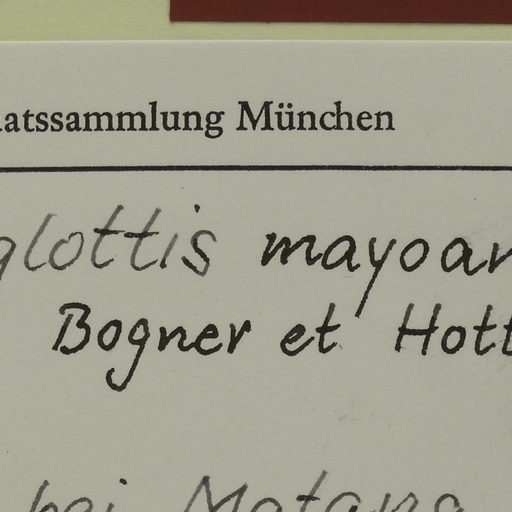 atssammlung München
glottis mayoan
Bogner et Hott
bei Matana